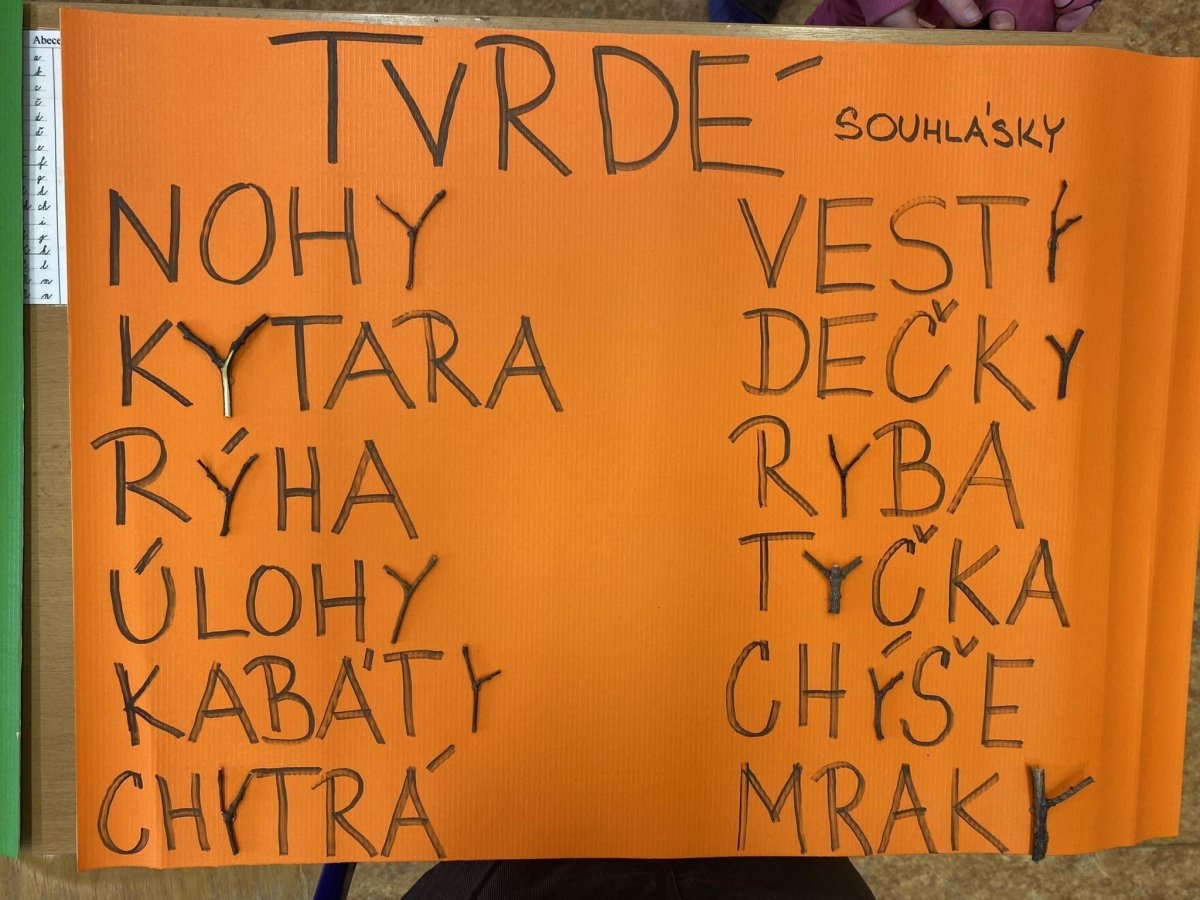 TVRDÉ SOUHLÁSKY
NOHY
KYTARA
RÝHA
ÚLOHY
KABÁTY
CHYTRÁ
VESTY
DEČKY
RYBA
TYČKA
CHÝŠE
MRAKY
Abece
a
b
c
č
d
ď
e
f
g
h
ch
i
j
k
l
m
n